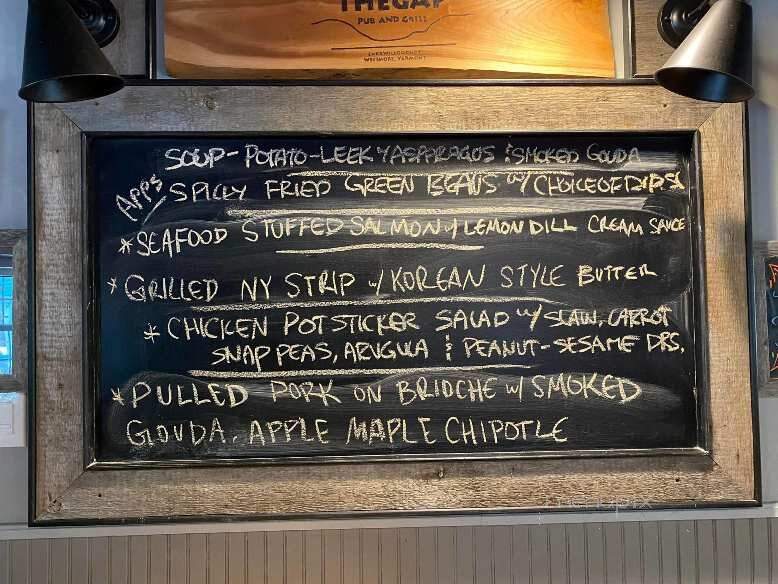 THE GAP
PUB AND GRILL
SOUP - POTATO-LEEK w/ ASPARAGUS & SMOKED GOUDA
Apps
SPICEY FRIED GREEN BEANS w/ CHOICE OF DIPS
* SEAFOOD STUFFED SALMON w/ LEMON DILL CREAM SAUCE
* GRILLED NY STRIP w/ KOREAN STYLE BUTTER
* CHICKEN POTSTICKER SALAD w/ SLAW, CARROT
SNAP PEAS, ARUGULA & PEANUT-SESAME DRS.
* PULLED PORK ON BRIOCHE w/ SMOKED
GOUDA. APPLE MAPLE CHIPOTLE